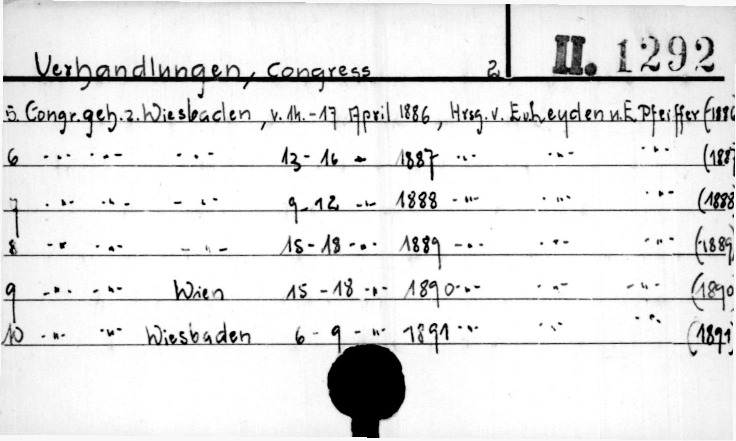 Verhandlungen, Congress 2 II. 1292
5. Congr. geh. z. Wiesbaden, v. 14.-17 April 1886, Hrsg. v. E. v. Leyden u. E. Pfeiffer (1886
6 -"- -"- -"- 13-16 " 1887 -"- -"- -"- (1887
7 -"- -"- -"- 9-12 -"- 1888 -"- -"- -"- (1888
8 -"- -"- -"- 15-18 -"- 1889 -"- -"- -"- (1889)
9 -"- -"- Wien 15-18 -"- 1890 -"- -"- -"- (1890)
10 -"- -"- Wiesbaden 6-9 -"- 1891 -"- -"- -"- (1891)